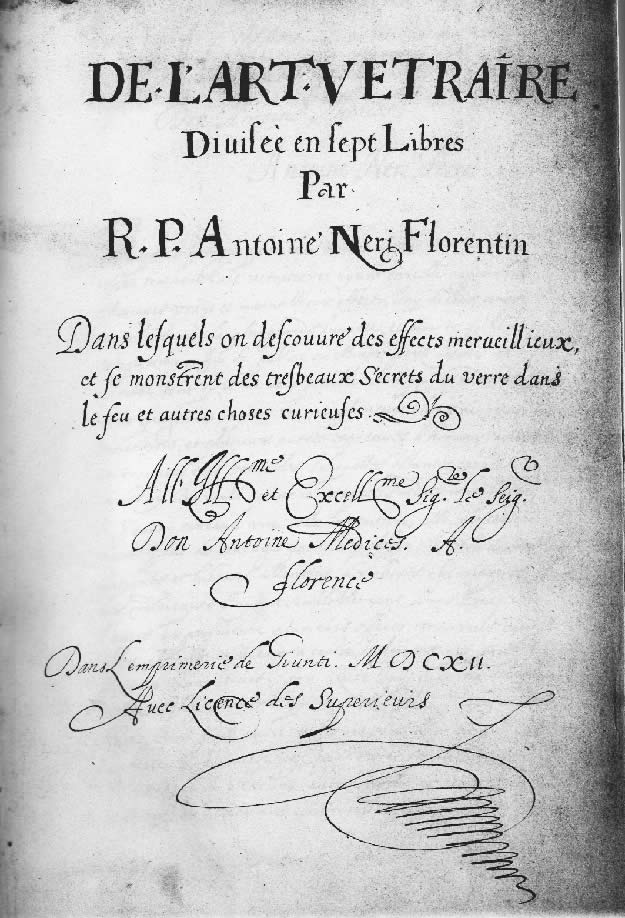 DE·L'ART·VETRAIRE
Diuiseè en sept Libres
Par
R. P. Antoine Neri Florentin
Dans lesquels on descouure des effects merueillieux,
et se monstrent des tresbeaux Secrets du verre dans
le feu et autres choses curieuses.
All' Ill.me et Excell.me Sig.re le Seig.r
Don Antoine Medices. A.
Florence
Dans L'emprimerie de Giunti. MDCXII.
Auec Licence des Superieurs